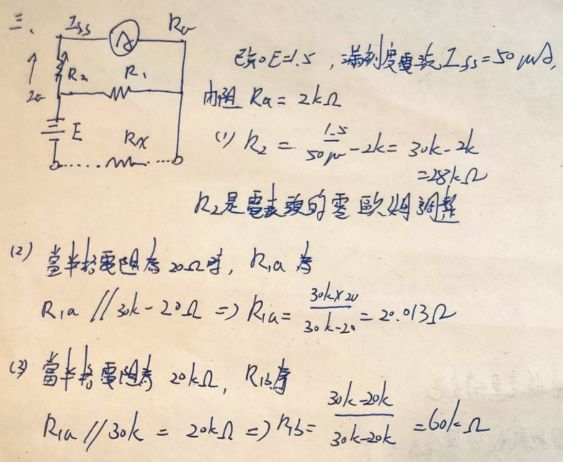 三、
Iss
A
Ra
R2
R1
E
Rx
已知E=1.5，滿刻度電流Iss=50μA,
內阻 Ra=2kΩ
(1) R2 = 1.5/50μ -2k= 30k-2k
=28kΩ
R2是電表頭的零歐姆調整
(2) 當半格電阻為20Ω時，R1a為
R1a // 30k - 20Ω => R1a= 30k×20/30k-20 = 20.013Ω
(3) 當半格電阻為20kΩ, R1b為
R1a // 30k = 20kΩ => R1b= 30k-20k/30k-20k =60kΩ